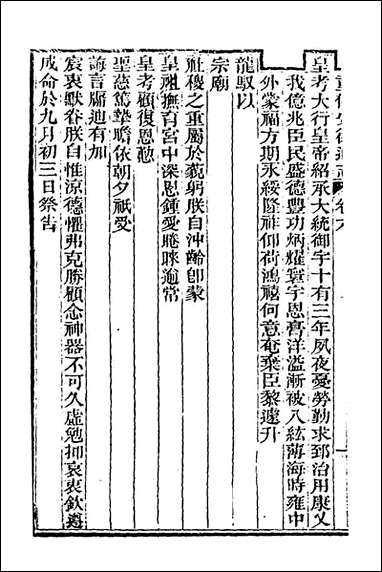 皇考大行皇帝紹承大統御宇十有三年夙夜憂勞勤求郅治用康乂
我億兆臣民盛德豐功炳耀寰宇恩膏洋溢漸被八紘薄海時雍中
外蒙福方期永綏隆祥仰荷鴻禧何意奄棄臣黎遽升
龍馭以
宗廟
社稷之重屬於藐躬朕自沖齡卽蒙
皇祖撫育宮中深恩鍾愛睠睞逾常
皇考顧復恩勤
聖慈篤摯瞻依朝夕祇受
誨言啟迪有加
宸衷默眷朕自惟涼德懼弗克勝顧念神器不可久虛勉抑哀衷欽遵
成命於九月初三日祭告